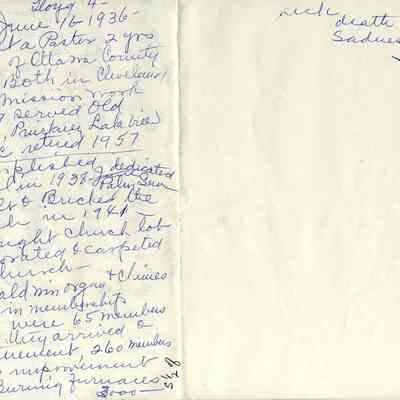 Lloyd 4 -
June 16 - 1936 -
a Pastor 2 yrs
of Ottawa County
Both in Cleveland
Mission work
served Old
Pinckney Lakeview
retired 1957
plished
in 1938 - dedicated
Palm Sun
& Bricked the
in 1941 -
ught church lot
orated & carpeted
church -
aldwin organ & chimes
in membership
were 65 members
they arrived &
ement, 260 members
improvement
Burning Furnaces
3000 -
death
Sadnes